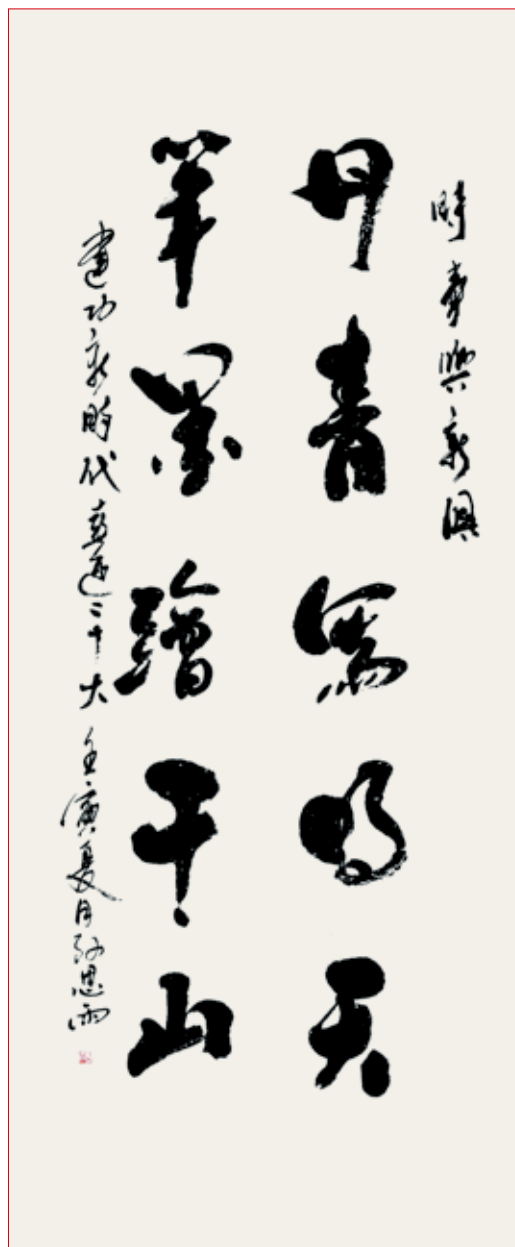 時 與新
丹青寫明天
筆墨繪千山
建功新時代 喜迎二十大 壬寅夏月 思雨